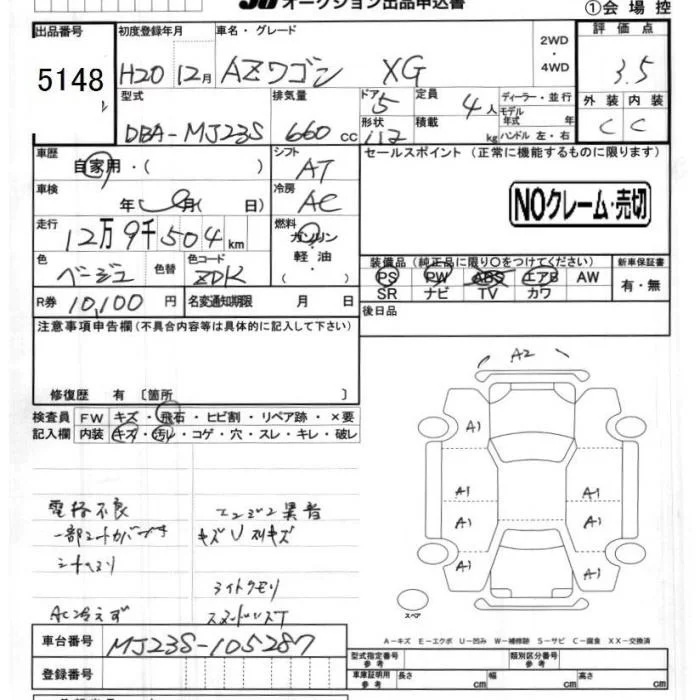 オークション出品申込書
①会場控
出品番号
5148
初度登録年月
H20 12月
車名・グレード
AZワゴン XG
2WD
・
4WD
評価点
3.5
外装 内装
C C
型式
DBA-MJ23S
排気量
660cc
ドア 5
形状
定員 4人
積載 kg
ディーラー・並行
モデル年式 年
ハンドル 左・右
車歴
自家用・( )
シフト
AT
セールスポイント(正常に機能するものに限ります)
NOクレーム・売切
車検
年 月( 日)
冷房
AC
走行
12万9千504km
燃料
ガソリン
軽油・
( )
色
ベージュ
色替
色コード
ZDK
装備品(純正品に限り○をつけてください)
PS PW ABS エアB AW
SR ナビ TV カワ
新車保証書
有・無
R券 10,100円
名変通知期限 月 日
後日品
注意事項申告欄(不具合内容等は具体的に記入して下さい)
修復歴 有〔箇所 〕
検査員 FW キズ・飛石・ヒビ割・リペア跡・×要
記入欄 内装 キズ・汚レ・コゲ・穴・スレ・キレ・破レ
電格不良
エンジン異音
キズU
ライトクモリ
AC冷えず
A2
A1
A1 A1
A1 A1
A1 A1
スペア
A-キズ E-エクボ U-凹み W-補修跡 S-サビ C-腐食 XX-交換済
車台番号 MJ23S-105287
登録番号
型式指定番号 参考
類別区分番号 参考
車庫証明用 参考 長さ cm 幅 cm 高さ cm